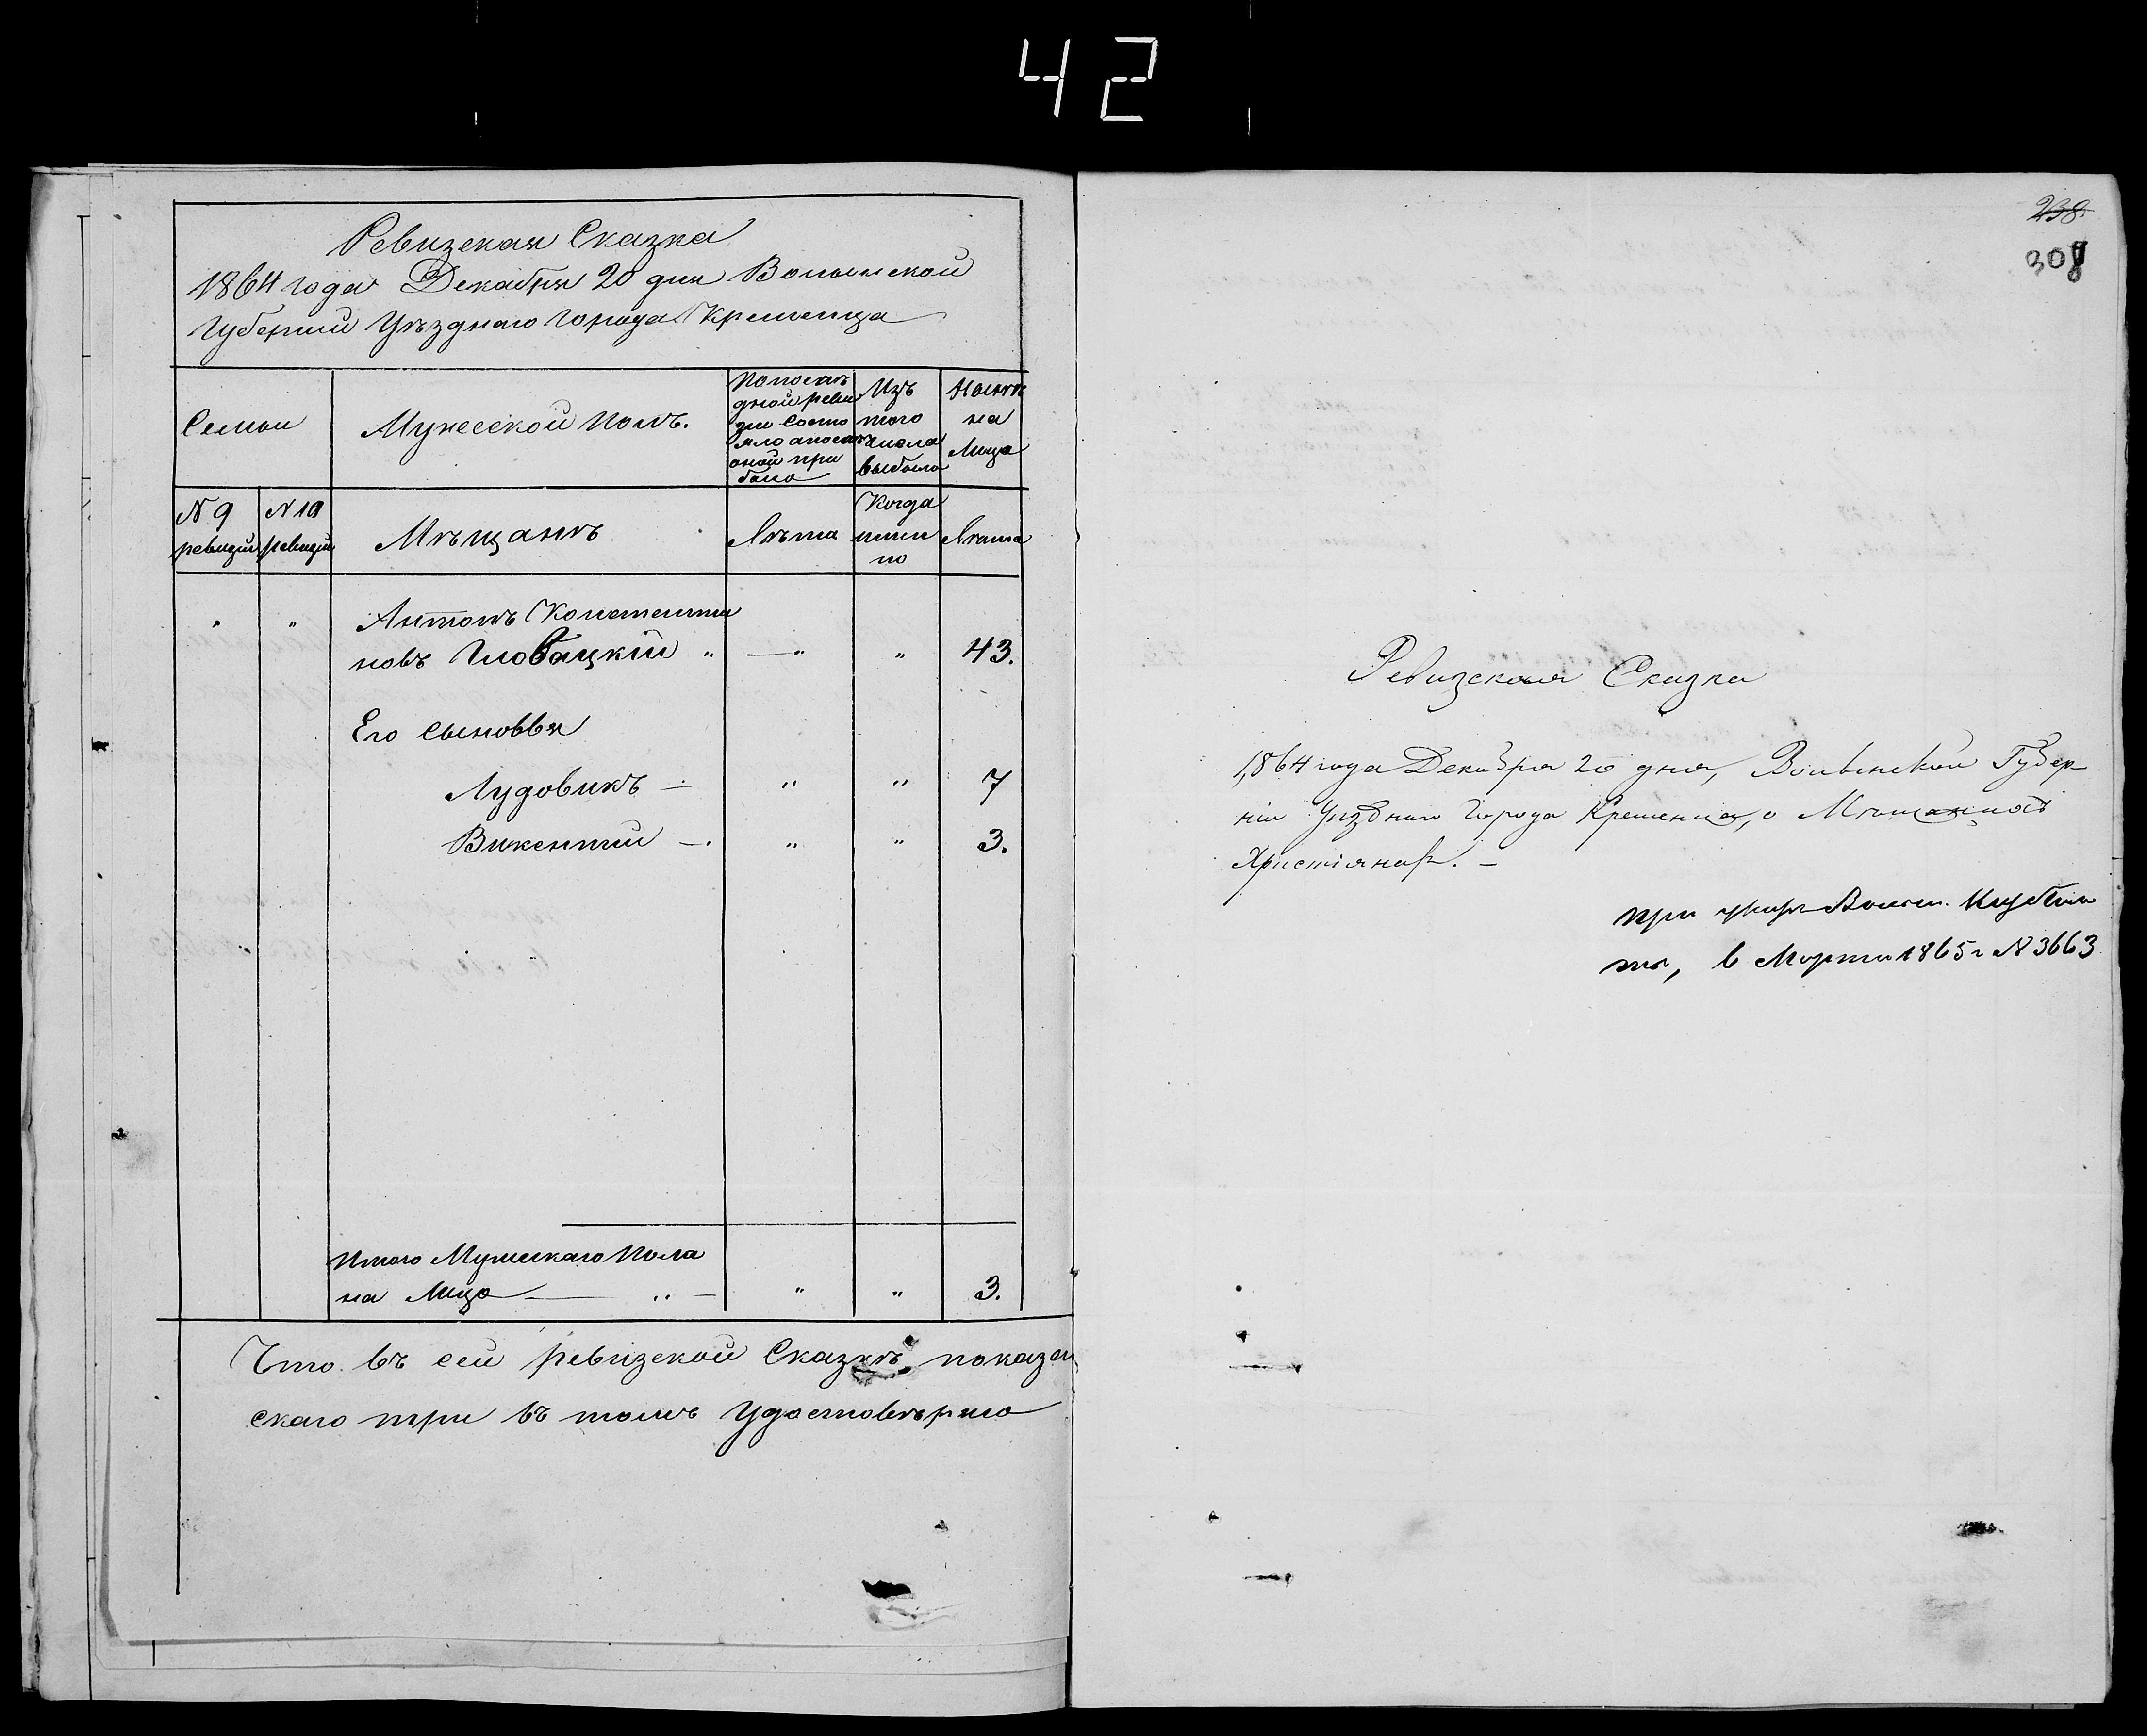 42
Ревизская Сказка
1864 года Декабря 20 дня Волынской
Губернии Уѣзднаго Города Кременца
Семьи
Мужеской полъ.
По послѣ
дной реви
зіи состо
яло а послѣ
оной при
было
Изъ
того
числа
выбыло
Нынѣ
на
лицо
N 9
ревизіи
N 10
ревизіи
Мѣщанъ
Лѣта
Когда
имен
но
Лѣта
" " Антонъ Константи
новъ Гловацкій " — " " 43.
Его сыновья
Лудовикъ — " " 7
Викентий — . " " 3.
Итого Мужескаго Пола
на Лицо — " — " " 3.
Что въ сей ревизской Сказкѣ, показан
скаго три въ томъ Удостовѣряю
238
308
Ревизская Сказка
1864 года Декабря 20 дня, Волынской Губер
ніи Уѣзднаго Города Кременца, о Мѣщанахъ
Христіанахъ. —
при указѣ Волын.
ты, в Марта 1865 г N 3663